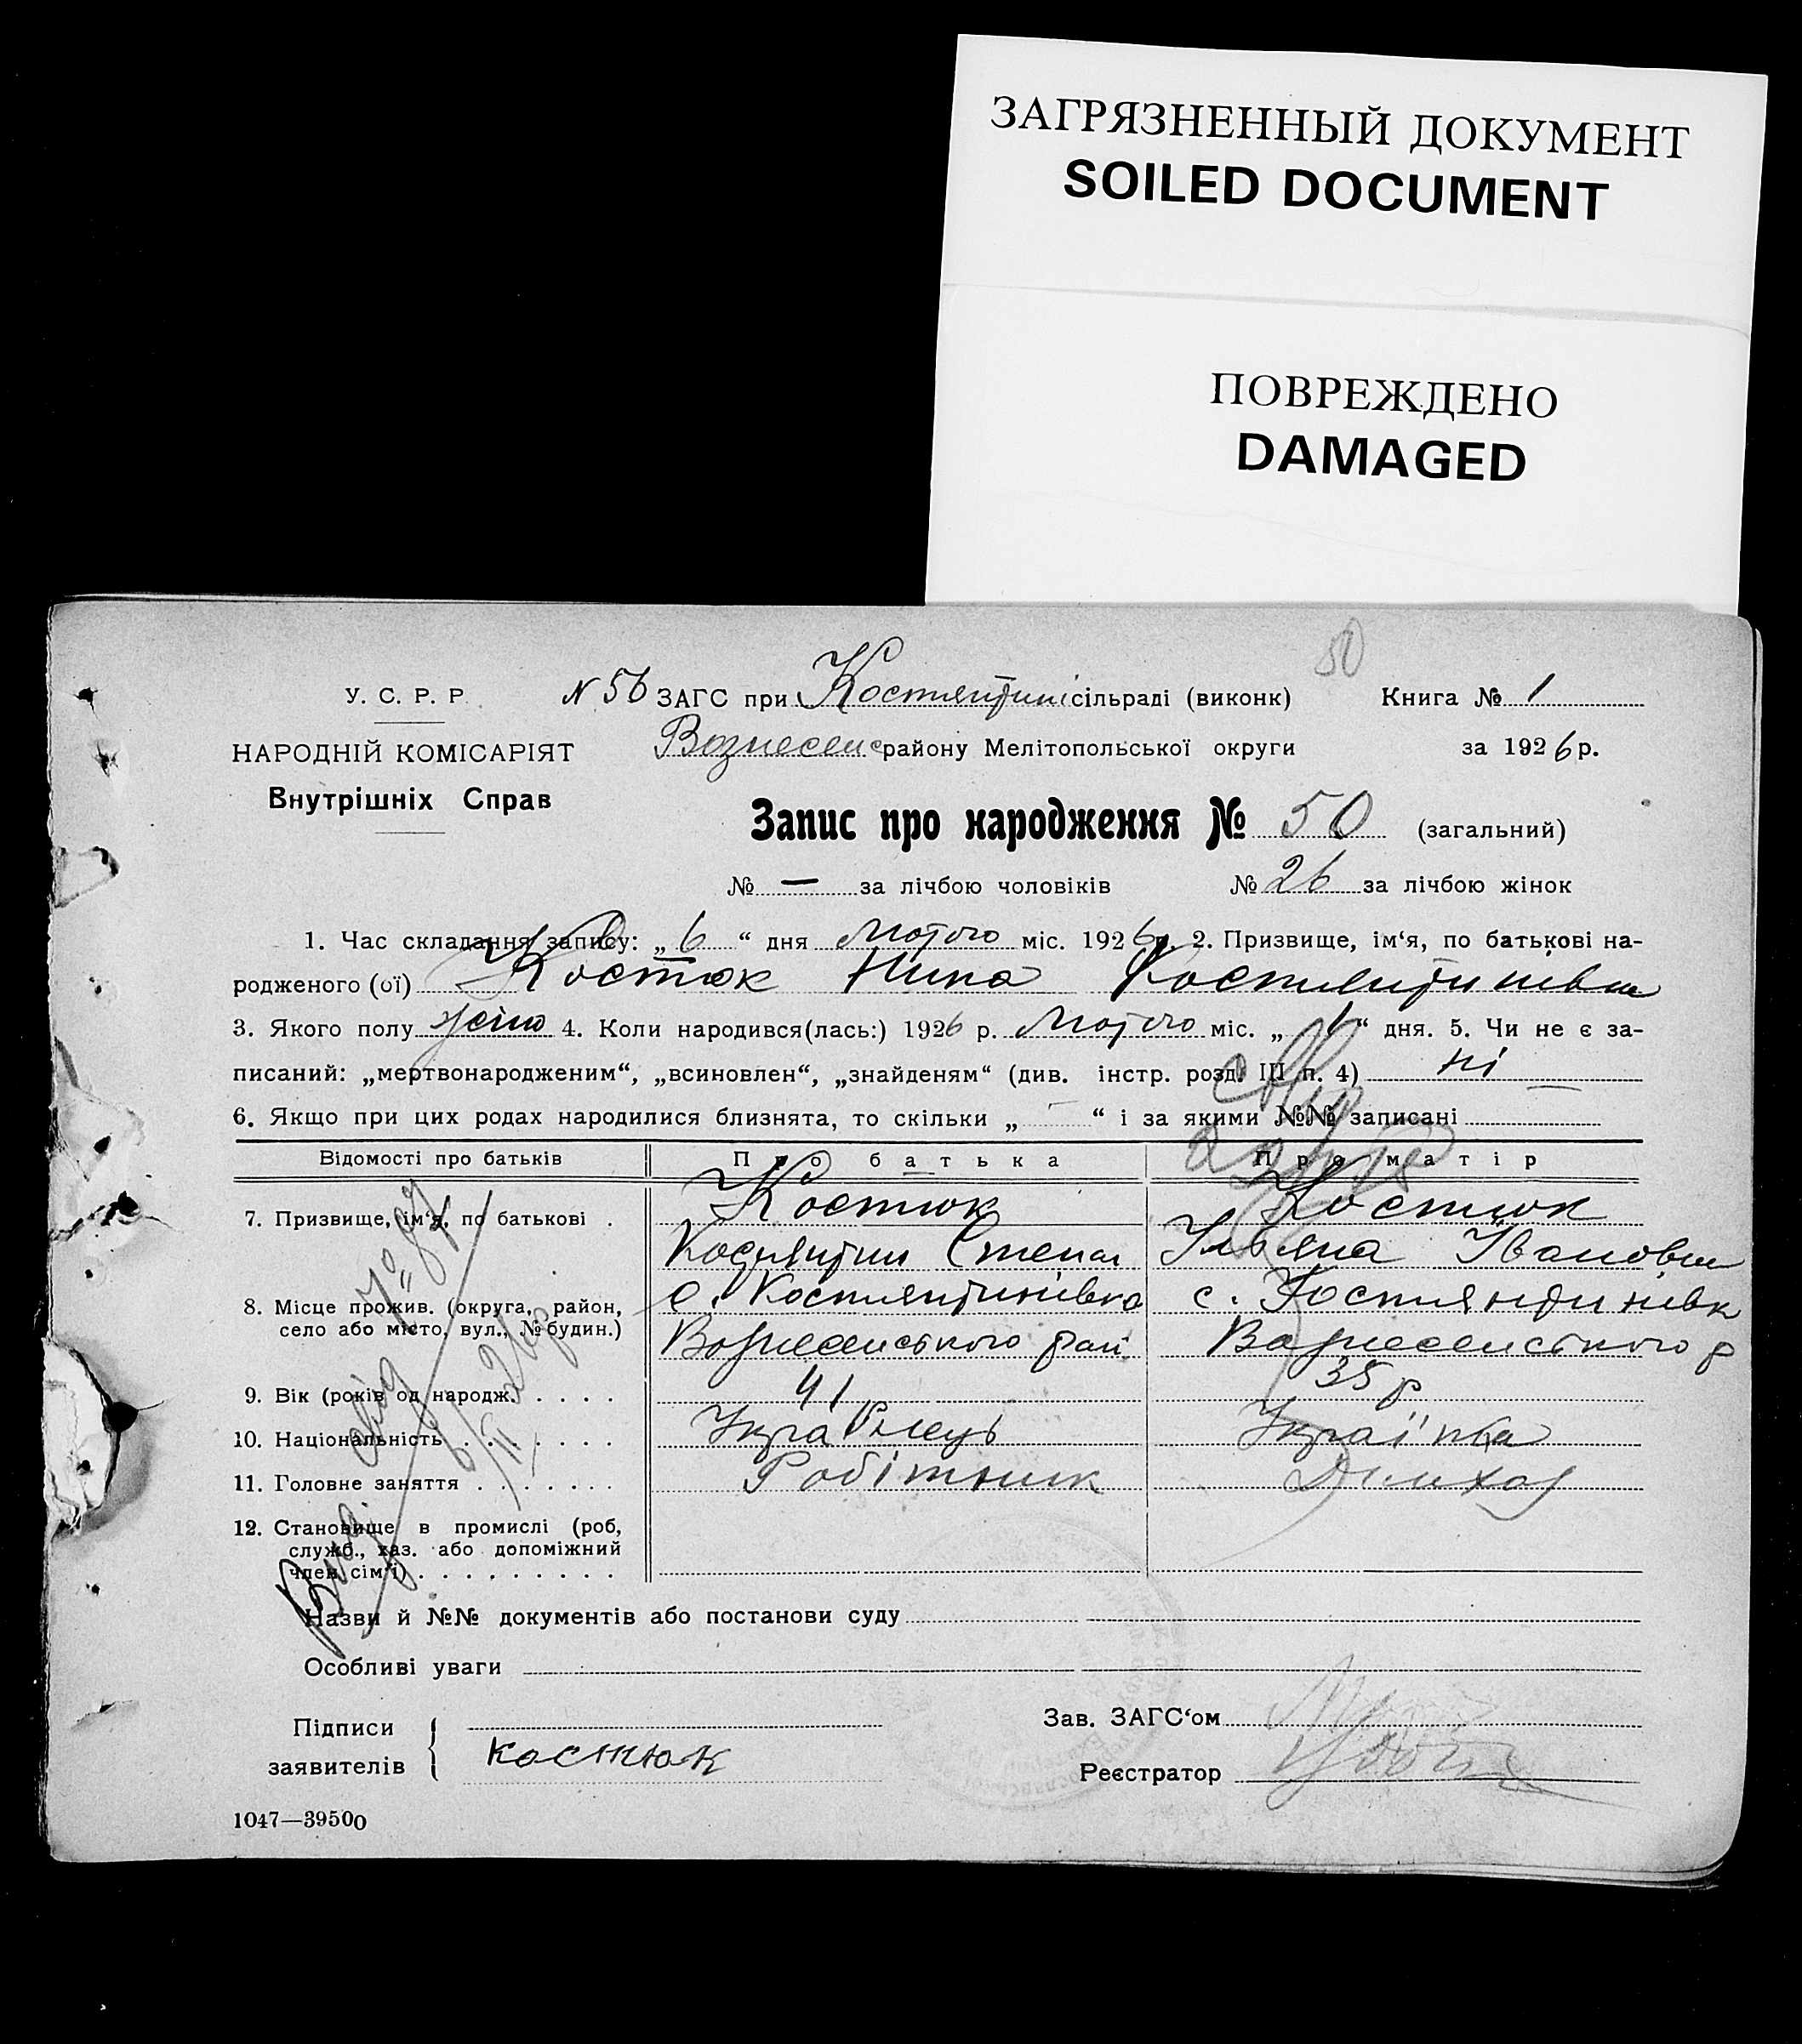 ЗАГРЯЗНЕННЫЙ ДОКУМЕНТ
SOILED DOCUMENT
ПОВРЕЖДЕНО
DAMAGED
50
У. С. Р. Р.
НАРОДНІЙ КОМІСАРІЯТ
Внутрішніх Справ
N 56 ЗАГС при Костянтині сільраді (виконк)
Книга № 1
Вознесенс району Мелітопольської округи
за 1926 р.
Запис про народження № 50 (загальний)
№ — за лічбою чоловіків № 26 за лічбою жінок
1. Час складання запису: „ 6 “ дня Лютого міс. 1926 р. 2. Призвище, ім‘я, по батькові на-
родженого (ої) Костюк Нина Костянтинівна
3. Якого полу жіно 4. Коли народився(лась:) 1926 р. Лютого міс. „ 1 “ дня. 5. Чи не є за-
писаний: „мертвонародженим“, „всиновлен“, „знайденям“ (див. інстр. розд. III п. 4) ні
6. Якщо при цих родах народилися близнята, то скільки „ — “ і за якими №№ записані —
Відомості про батьків Про батька Про матір
7. Призвище, ім‘я, по батькові . Костюк Костюк
Костянтин Степан Ульяна Івановна
8. Місце прожив. (округа, район, с. Костянтинівка с. Костянтинівк
село або місто, вул., № будин.) Вознесенського рай Вознесенського р
9. Вік (років од народж.) . . . . 41 35 р
10. Національність . . . . . . . Українець Українка
11. Головне заняття . . . . . . . Робітник Домхоз
12. Становище в промислі (роб,
служб., хаз. або допоміжний
член сім‘ї) . . . . . . . . . .
Назви й №№ документів або постанови суду
Особливі уваги
Підписи
заявителів
костюк
Зав. ЗАГС‘ом
Реєстратор
1047—39500